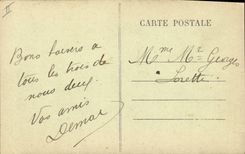 II
CARTE POSTALE
Bons baisers a
tous les trois de
nous deux.
Vos amis
Demar
Mme Mr Georges
Loretti